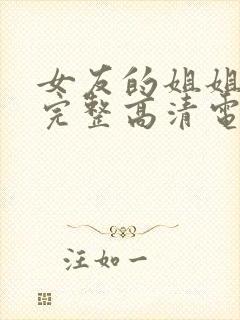 女友的姐姐
完整高清电
汪如一